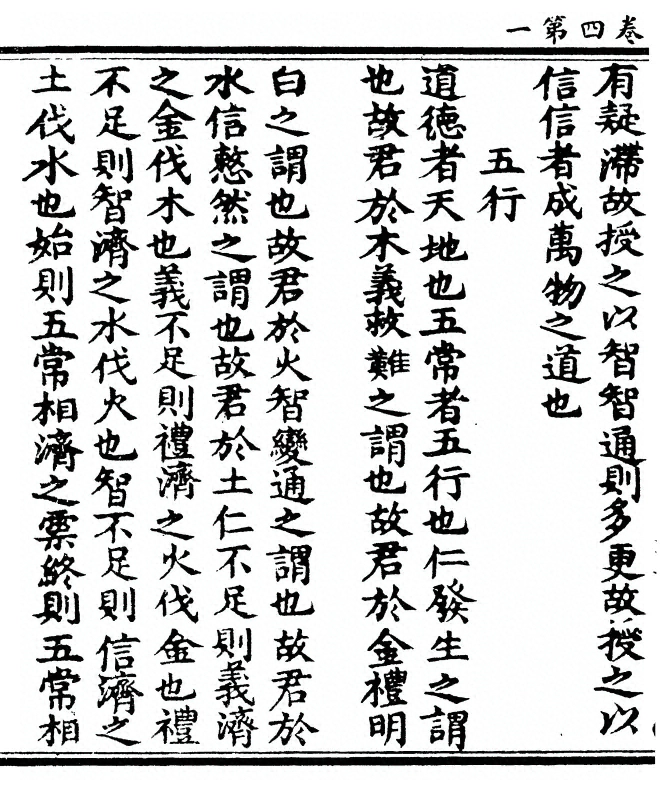 一第四卷
有疑滯故授之以智智通則多更故授之以
信信者成萬物之道也
五行
道德者天地也五常者五行也仁發生之謂
也故君於木義救難之謂也故君於金禮明
白之謂也故君於火智變通之謂也故君於
水信慤然之謂也故君於土仁不足則義濟
之金伐木也義不足則禮濟之火伐金也禮
不足則智濟之水伐火也智不足則信濟之
土伐水也始則五常相濟之業終則五常相